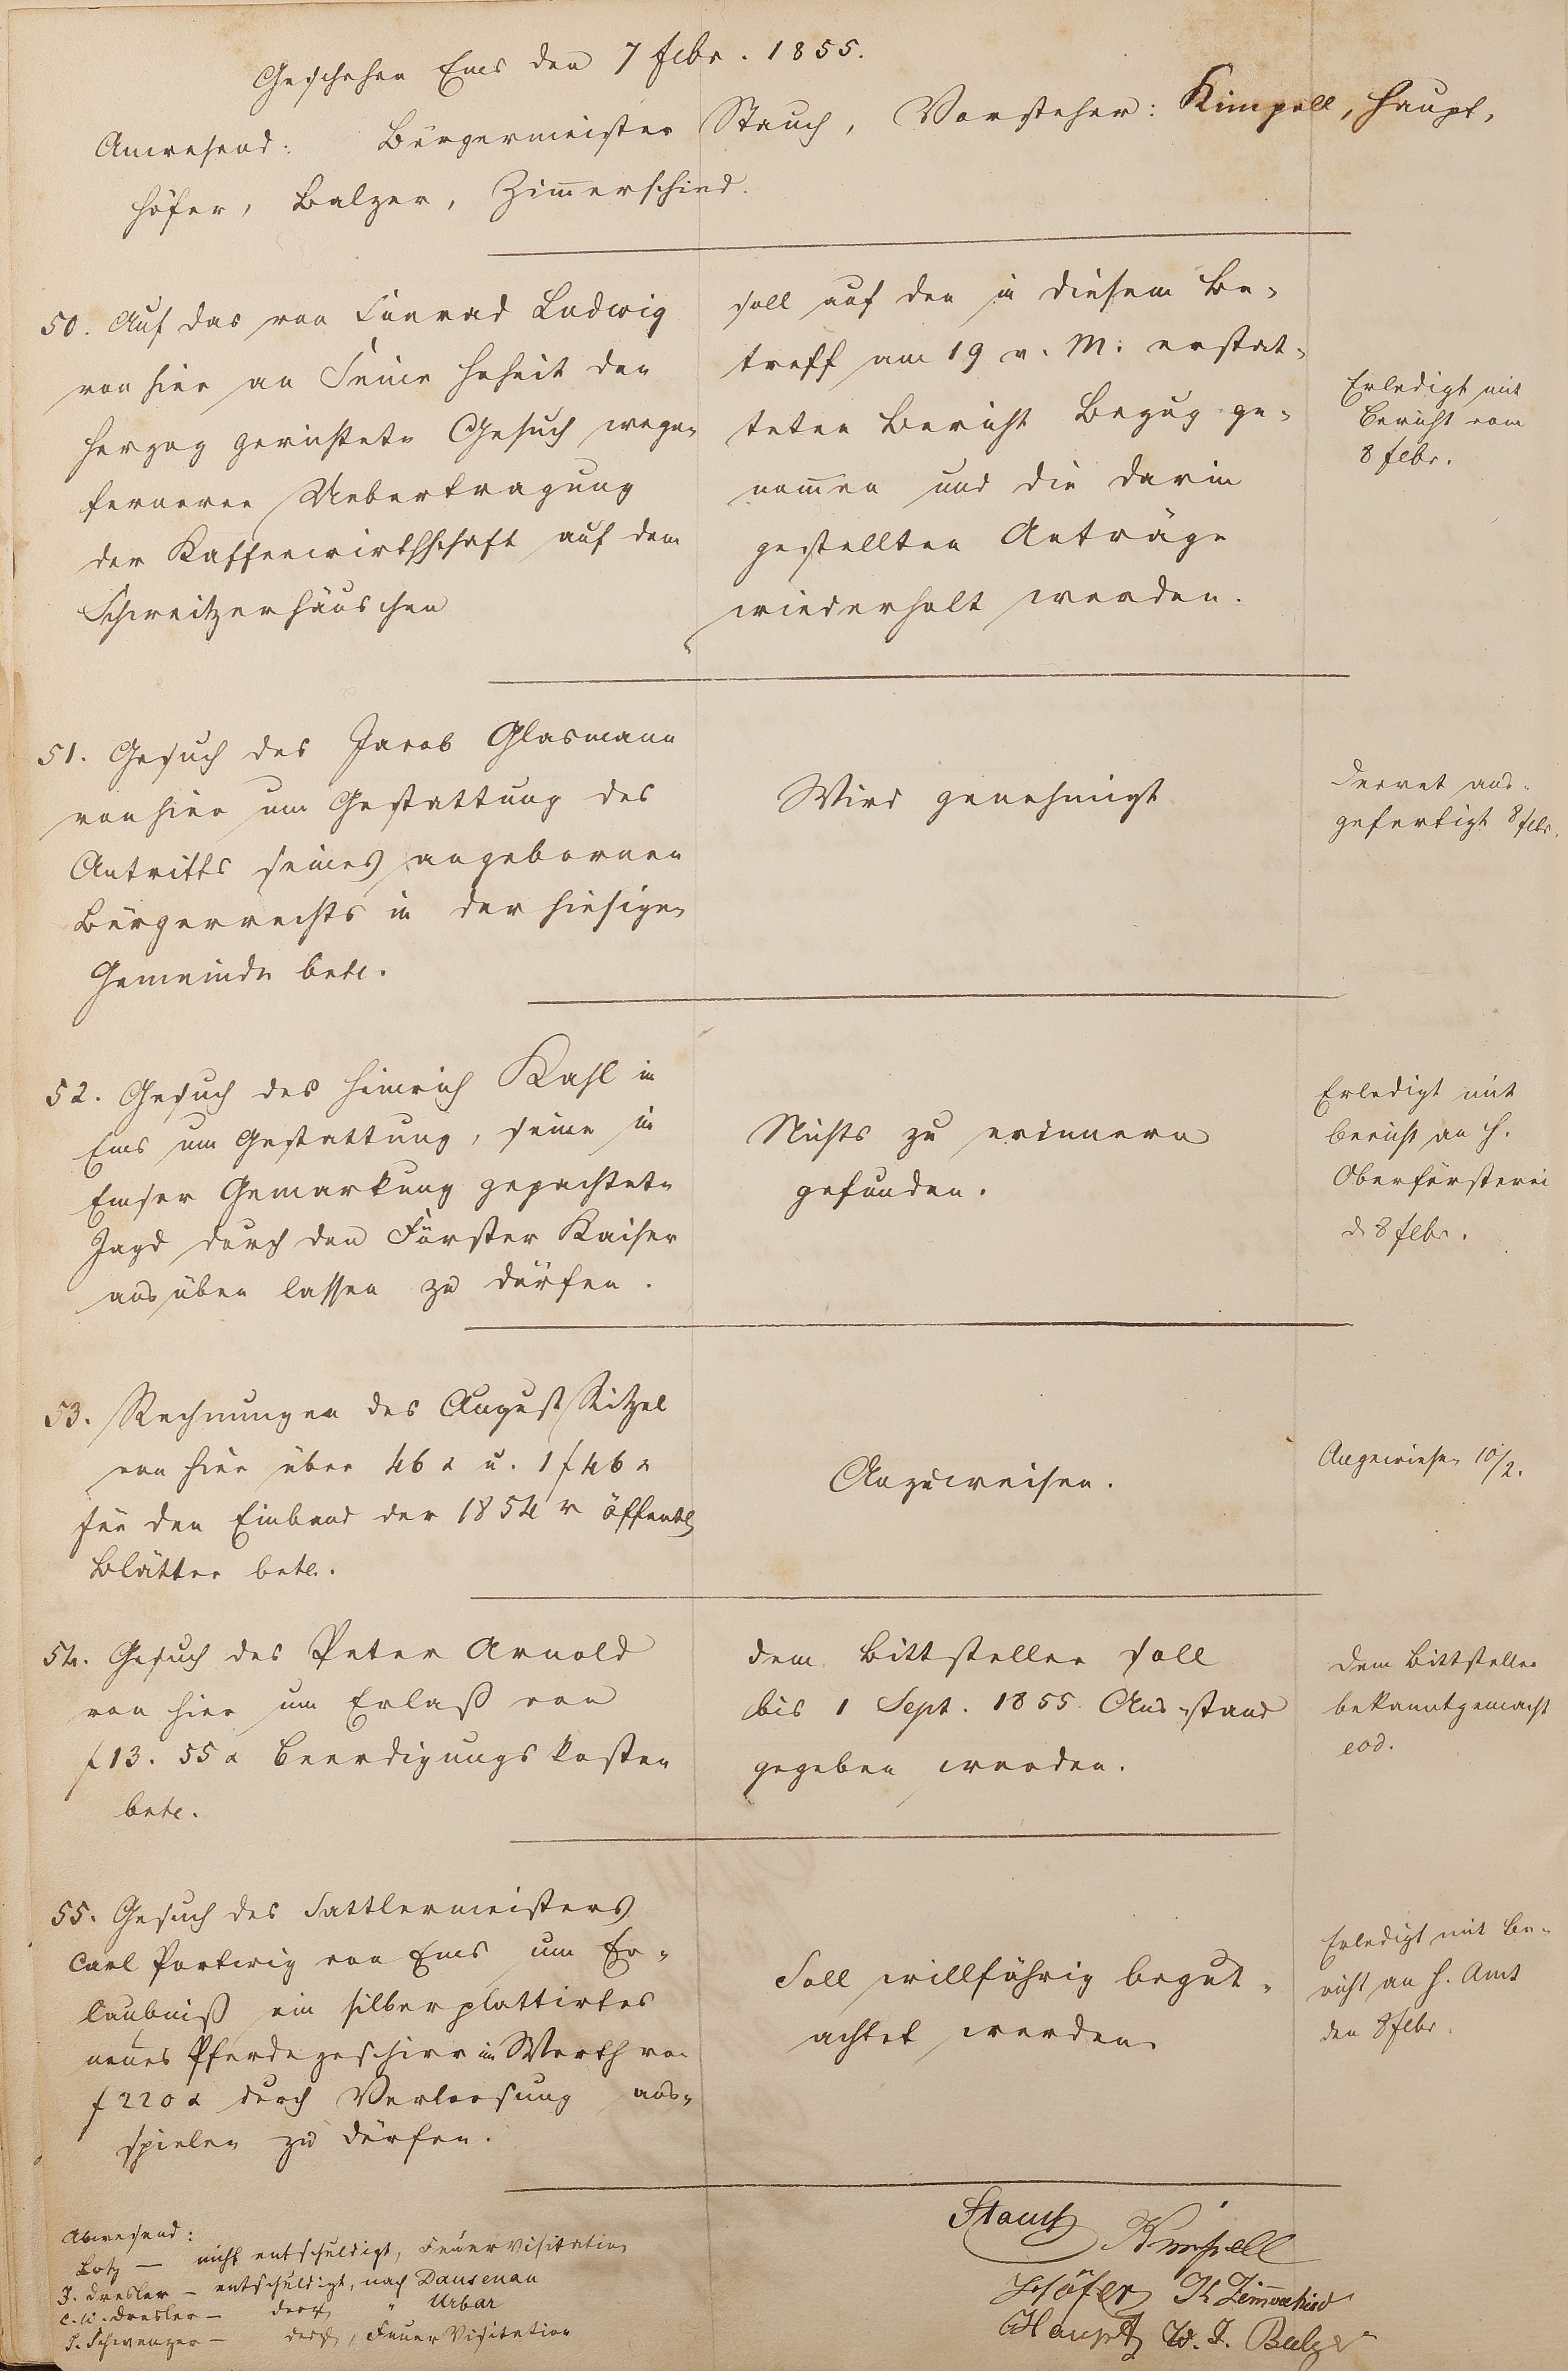 Geschehen Ems den 7 Febr. 1855.
Anwesend: Bürgermeister Stauch, Vorsteher: Kimpell, Haupt,
Höfer, Balzer, Zim̅erschied.
50. Auf das von Conrad Ludwig
von hier an Seine Hoheit den
Herzog gerichtete Gesuch wegen
fernerer Uebertragung
der Kaffeewirthschaft auf dem
Schweitzerhäuschen
soll auf den in diesem Be-
treff am 19 v. M. erstat-
teten Bericht Bezug ge-
nom̅en und die darin
gestellten Anträge
wiederholt werden.
Erledigt mit
Bericht vom
8 Febr.
51. Gesuch des Jacob Glasmann
von hier um Gestattung des
Antritts seines angebornen
Bürgerrechts in der hiesigen
Gemeinde betr.
Wird genehmigt
Decret aus-
gefertigt 8 Febr.
52. Gesuch des Heinrich Kahl in
Ems um Gestattung, seine in
Emser Gemarkung gepachtete
Jagd durch den Förster Kaiser
ausüben lassen zu dürfen.
Nichts zu erinnern
gefunden.
Erledigt mit
Bericht an H.
Oberförsterei
d. 8 Febr.
53. Rechnungen des August
von hier über 46 x u. 1 f 46 x
für den Einband der 1854r öffentl
Blätter betr.
Anzuweisen.
Angewiesen 10/2.
54. Gesuch des Peter Arnold
von hier um Erlaß von
f 13. 55 x Beerdigungskosten
betr.
dem Bittsteller soll
bis 1 Sept. 1855 Ausstand
gegeben werden.
Dem Bittsteller
bekanntgemacht
eod.
55. Gesuch des Sattlermeisters
Carl Portwig von Ems um Er-
laubniß ein silberplattirtes
neues Pferdegeschirr im Werth von
f 220 x durch Verloosung aus-
spielen zu dürfen.
Soll willfährig begut-
achtet werden.
Erledigt mit Be-
richt an H. Amt
den 8 Febr.
Abwesend:
Lotz — nicht entschuldigt, Feuervisitation
J. Dresler — entschuldigt, nach Dausenau
C. W. Dresler — desgl " Urbar
P. Schwenzer — desgl, Feuer Visitation
Stauch Kimpell
Höfer Zim̅erschied
Haupt W. J. Balzer